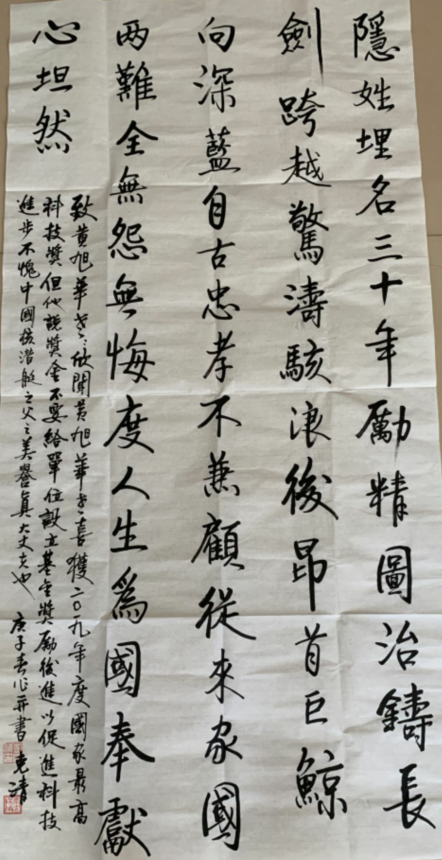 隱姓埋名三十年勵精圖治鑄長
劍跨越驚濤駭浪後昂首巨鯨
向深藍自古忠孝不兼顧從來家國
两難全無怨無悔度人生爲國奉獻
心坦然
致黄旭華老：欣聞黄旭華老喜獲二〇一九年度國家最高
科技獎但他說獎金不要給單位設立基金獎勵後進以促進科技
進步不愧中國核潜艇之父之美譽真大丈夫也
庚子春作并書克清